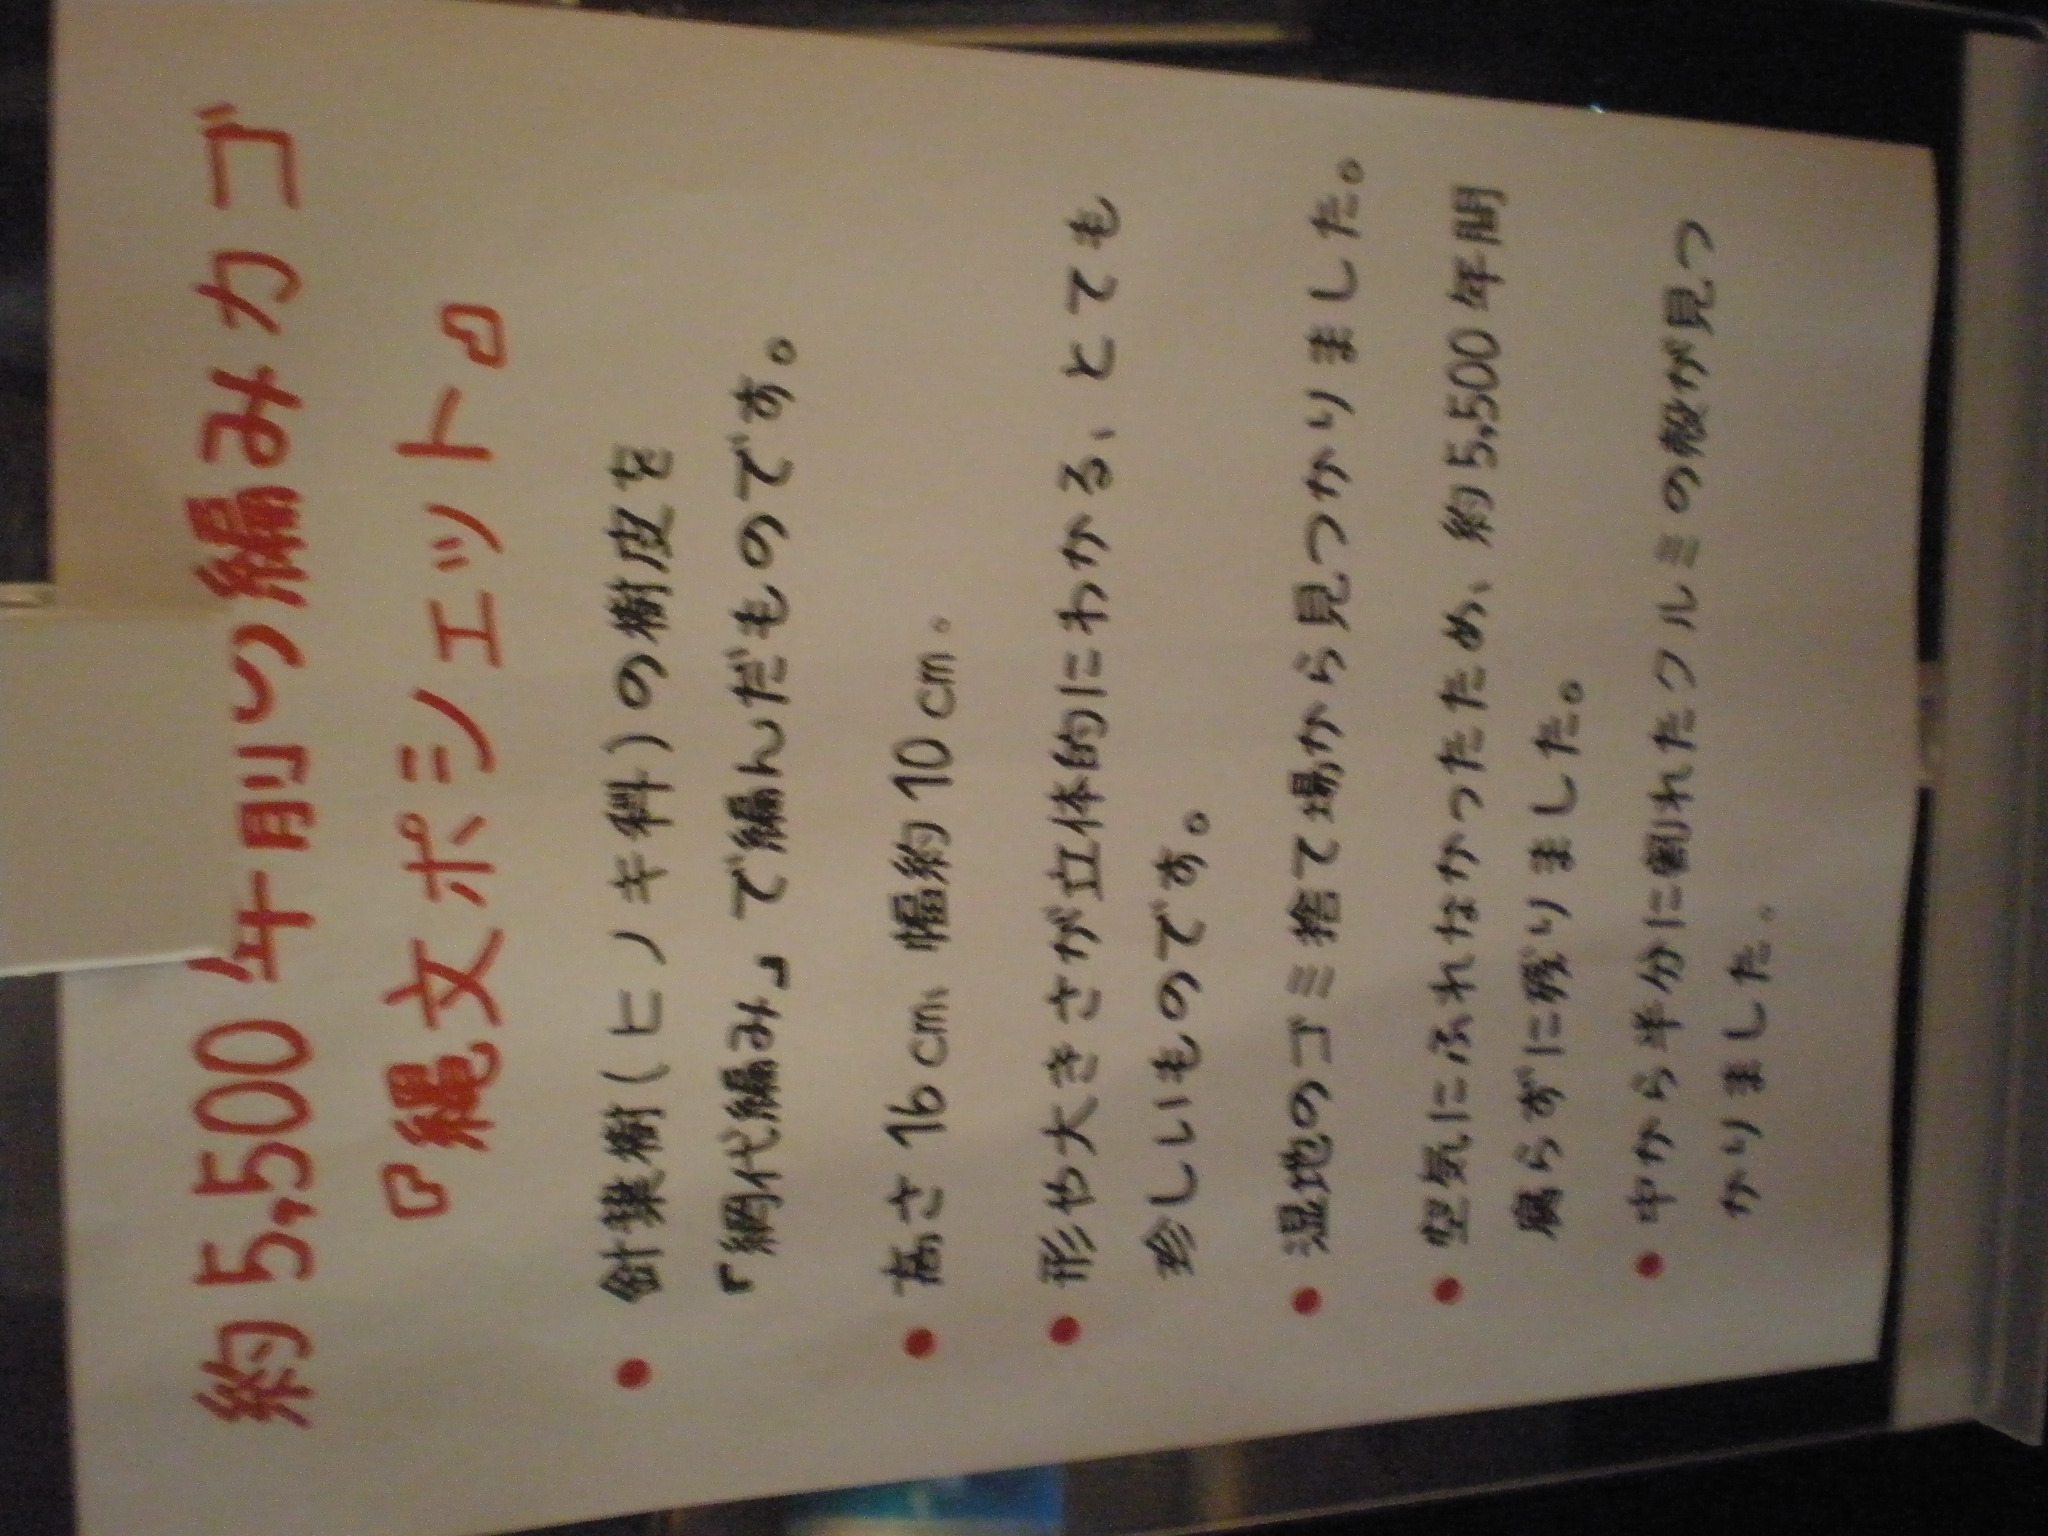 約5,500年前の編みカゴ
『縄文ポシェット』
● 針葉樹(ヒノキ科)の樹皮を
「網代編み」で編んだものです。
● 高さ16cm、幅約10cm。
● 形や大きさが立体的にわかる、とても
珍しいものです。
● 湿地のゴミ捨て場から見つかりました。
● 空気にふれなかったため、約5,500年間
腐らずに残りました。
● 中から半分に割れたクルミの殻が見つ
かりました。